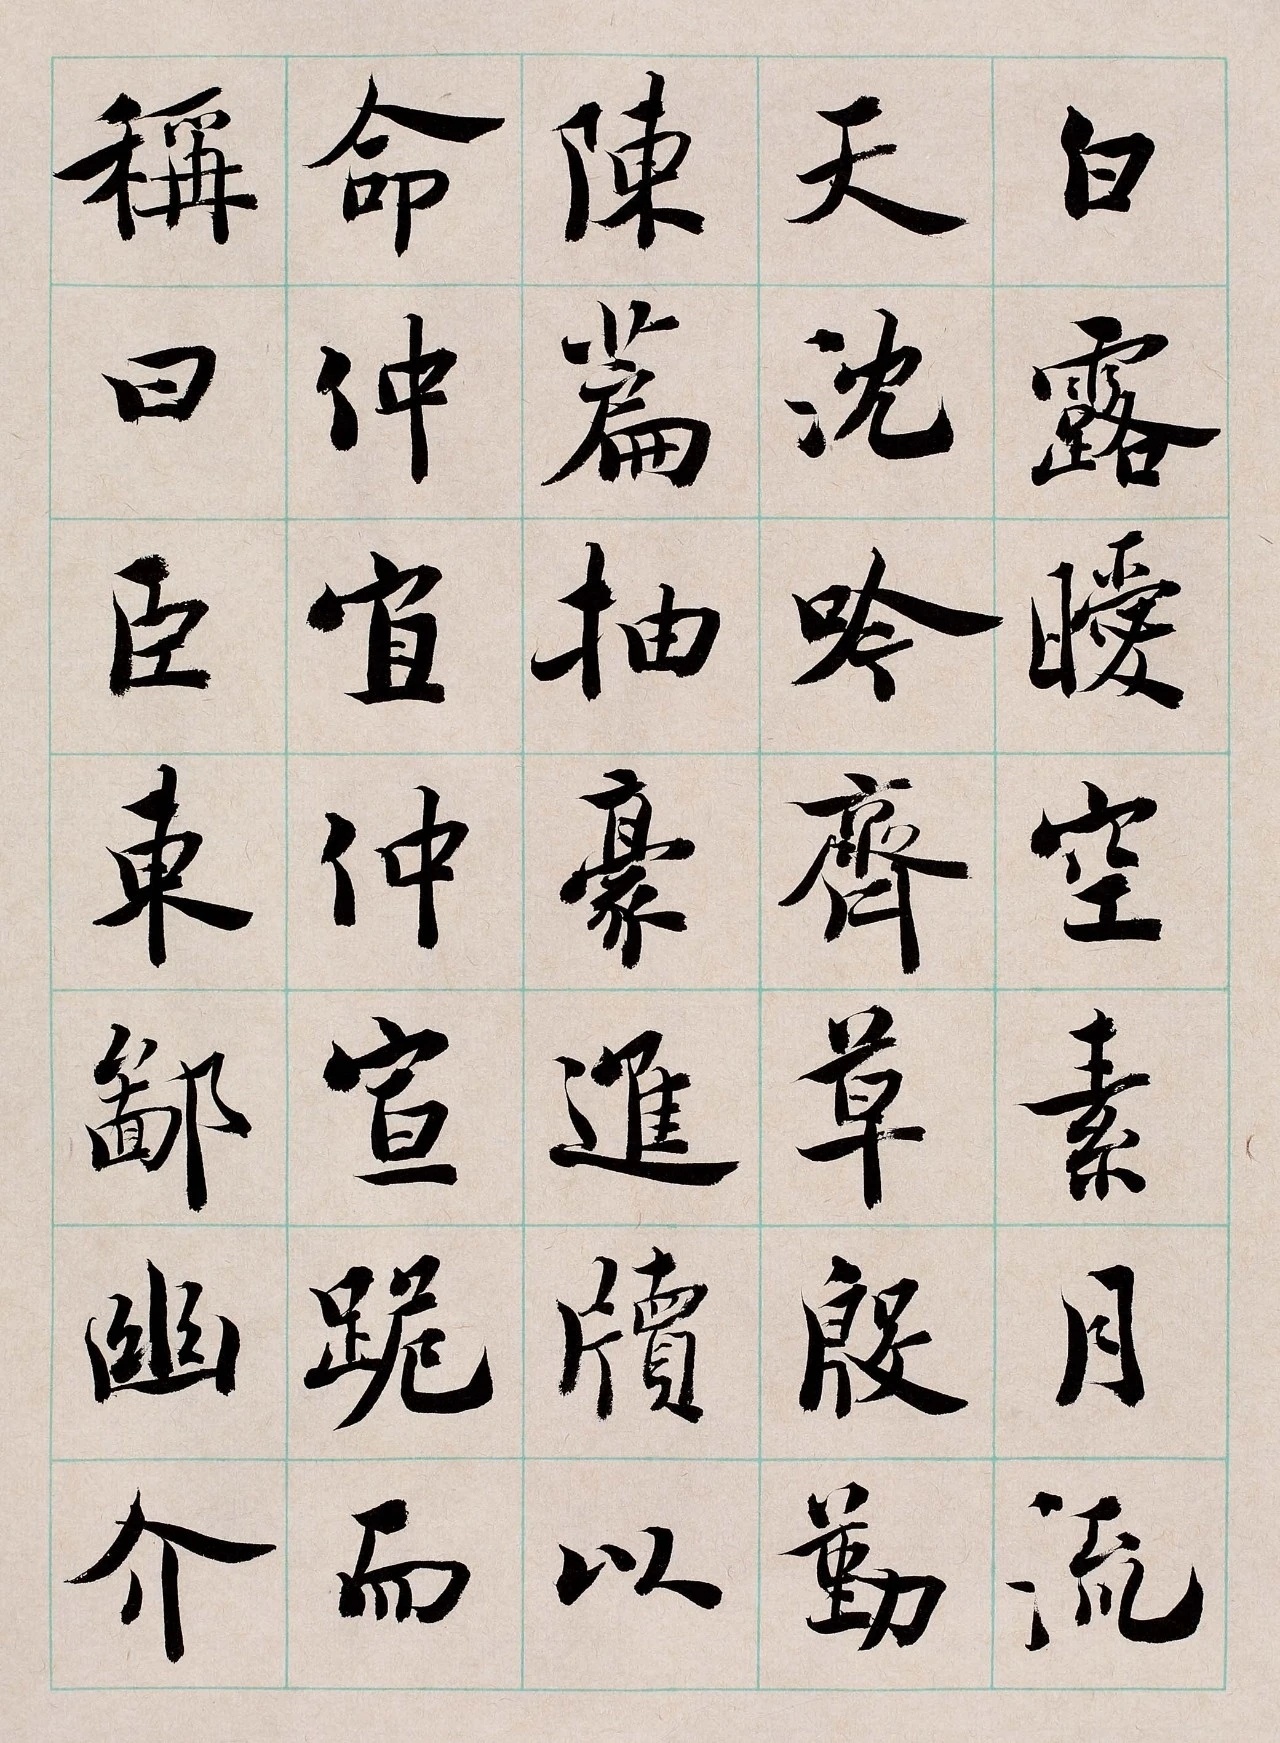 白露曖空素月流
天沈吟齊草殷勤
陳篇抽豪進牘以
命仲宣仲宣跪而
稱曰臣東鄙幽介